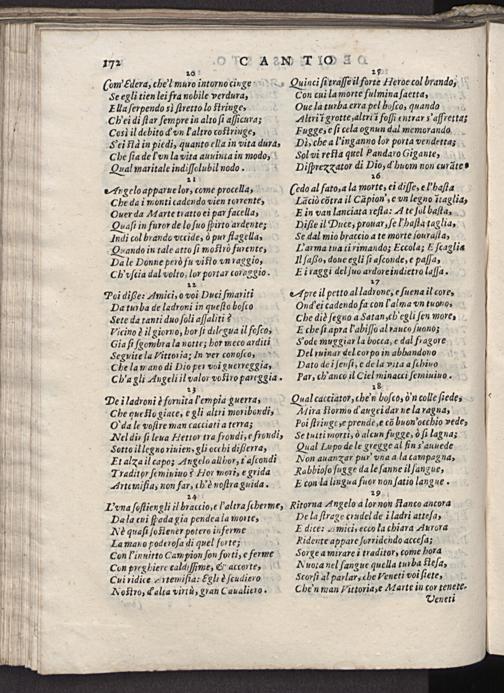 172
CANTO
20
Com'Edera, che'l muro intorno cinge
Se egli tien lei fra nobile verdura,
Ella serpendo sì stretto lo stringe,
Ch'ei di star sempre in alto si assicura;
Così il debito d'vn l'altro costringe,
S'ei stà in piedi, quanto ella in vita dura,
Che sia de l'vn la vita auuinta in modo,
Qual maritale indissolubil nodo.
21
Angelo apparue lor, come procella,
Che da i monti cadendo vien torrente,
Ouer da Marte tratto ei par facella,
Quasi in furor de lo suo spirto ardente;
Indi col brando vccide, ò pur flagella,
Quando in tale atto si mostrò furente,
Da le Donne però fu visto vn raggio,
Ch'vscia dal volto, lor portar coraggio.
22
Poi disse: Amici, o voi Duci smariti
Da turba de ladroni in questo bosco
Sete da tanti duo soli assaliti?
Vicino è il giorno, hor si dilegua il fosco,
Gia si sgombra la notte; hor meco arditi
Seguite la Vittoria; In ver conosco,
Che la mano di Dio per voi guerreggia,
Ch'a gli Angeli il valor vostro pareggia.
23
De i ladroni è fornita l'empia guerra,
Che questo giace, e gli altri moribondi,
O' da le vostre man cacciati a terra;
Nel dir si leua Hettor tra frondi, e frondi,
Sotto il legno riuien, gli occhi disserra,
Et alza il capo; Angelo allhor, t'ascondi
Traditor semiuiuo? Hor mori, e grida
Artemisia, non far, ch'è nostra guida.
24
L'vna sostiengli il braccio, e l'altra scherme,
Da la cui spada gia pendea la morte,
Nè quasi sostener potero inferme
La mano poderosa di quel forte;
Con l'inuitto Campion son forti, e ferme
Con preghiere caldissime, & accorte,
Cui ridice Artemisia: Egli è scudiero
Nostro, d'alta virtù, gran Caualiero.
25
Quinci si trasse il forte Heroe col brando,
Con cui la morte fulmina saetta,
Oue la turba erra pel bosco, quando
Altri i grotte, altri i fossi entrar s'affretta;
Fugge, e si cela ognun dal memorando
Dì, che a l'inganno lor porta vendetta;
Sol vi resta quel Pandaro Gigante,
Disprezzator di Dio, d'huom non curāte.
26
Cedo al fato, a la morte, ei disse, e l'hasta
Lāciò cōtra il Cāpion', e vn legno itaglia,
E in van lanciata resta: A te sol basta,
Disse il Duce, prouar, se l'hasta taglia,
Se dal mio braccio a te morte sourasta,
L'arma tua ti rimando; Eccola; E scaglia
Il sasso, doue egli si asconde, e passa,
E i raggi del suo ardore indietro lassa.
27
Apre il petto al ladrone, e suena il core,
Ond'ei cadendo fa con l'alma vn tuono,
Che diè segno a Satan, ch'egli sen more,
E che si apra l'abisso al rauco suono;
S'ode muggiar la bocca, e dal fragore
Del ruinar del corpo in abbandono
Dato de i sensi, e de la vita a schiuo
Par, ch'anco il Ciel minacci semiuiuo.
28
Qual cacciator, che'n bosco, ò'n colle siede,
Mira stormo d'augei dar ne la ragna,
Poi stringe, e prende, e cō buon'occhio vede,
Se tutti morti, ò alcun fugge, ò si lagna;
Qual Lupo de le gregge al fin s'auuede
Non auanzar pur' vna a la campagna,
Rabbioso fugge da le sanne il sangue,
E con la lingua fuor non satio langue.
29
Ritorna Angelo a lor non stanco ancora
De la strage crudel de i ladri attesa,
E dice: Amici, ecco la chiara Aurora
Ridente appare sorridendo accesa;
Sorge a mirare i traditor, come hora
Nuota nel sangue quella turba stesa,
Scorsi al parlar, che Veneti voi siete,
Che'n man Vittoria, e Marte in cor tenete.
Veneti